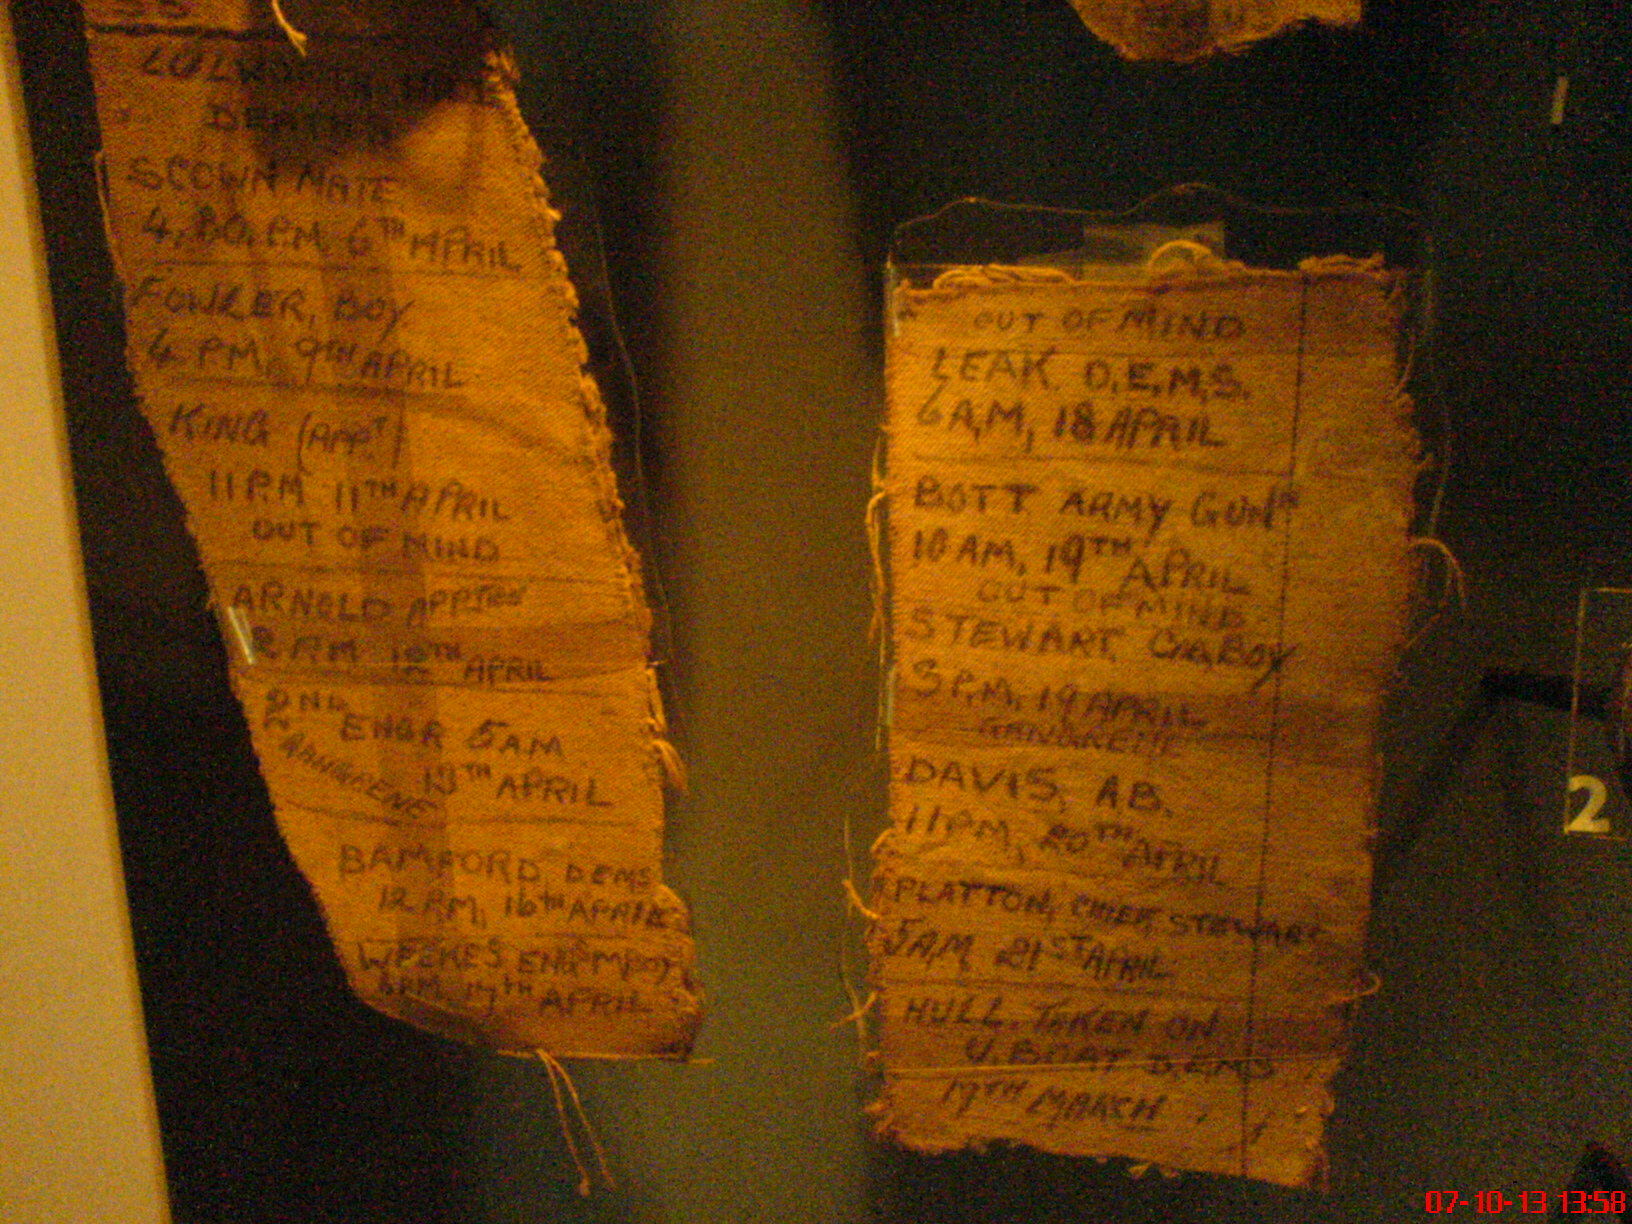 LULWORTH HILL
DEATHS
SCOWN MATE
4,30, P.M, 6TH APRIL
FOWLER, BOY
4 PM, 9TH APRIL
KING (APPT)
11 P.M 11TH APRIL
OUT OF MIND
ARNOLD
8 AM 12TH APRIL
2ND ENGR 5 AM
GRANGRENE 13TH APRIL
BAMFORD DEMS
12 P.M, 16TH APRIL
WEEKES ENGS M BOY
17TH APRIL
OUT OF MIND
LEAK D,E,M,S.
6 A,M, 18 APRIL
BOTT ARMY GUNR
10 AM, 19TH APRIL
OUT OF MIND
STEWART, CABBOY
5 P,M, 19 APRIL
GANGRENE
DAVIS, AB.
11 PM, 20TH APRIL
PLATTON, CHIEF, STEWART
5 A,M, 21ST APRIL
HULL, TAKEN ON
U. BOAT D.EMS
17TH MARCH
2
07-10-13 13:58